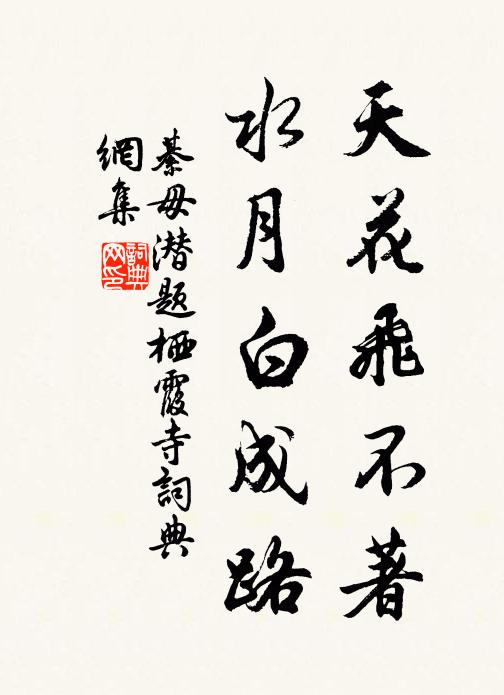 天花飛不著
水月白成路
綦毋潜题栖霞寺詞典
網集
詞典网印